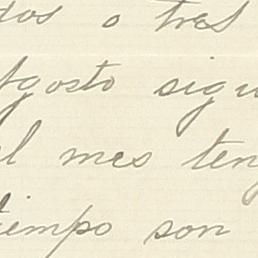 dos o tres
Agosto sigu
el mes teng
tiempo son